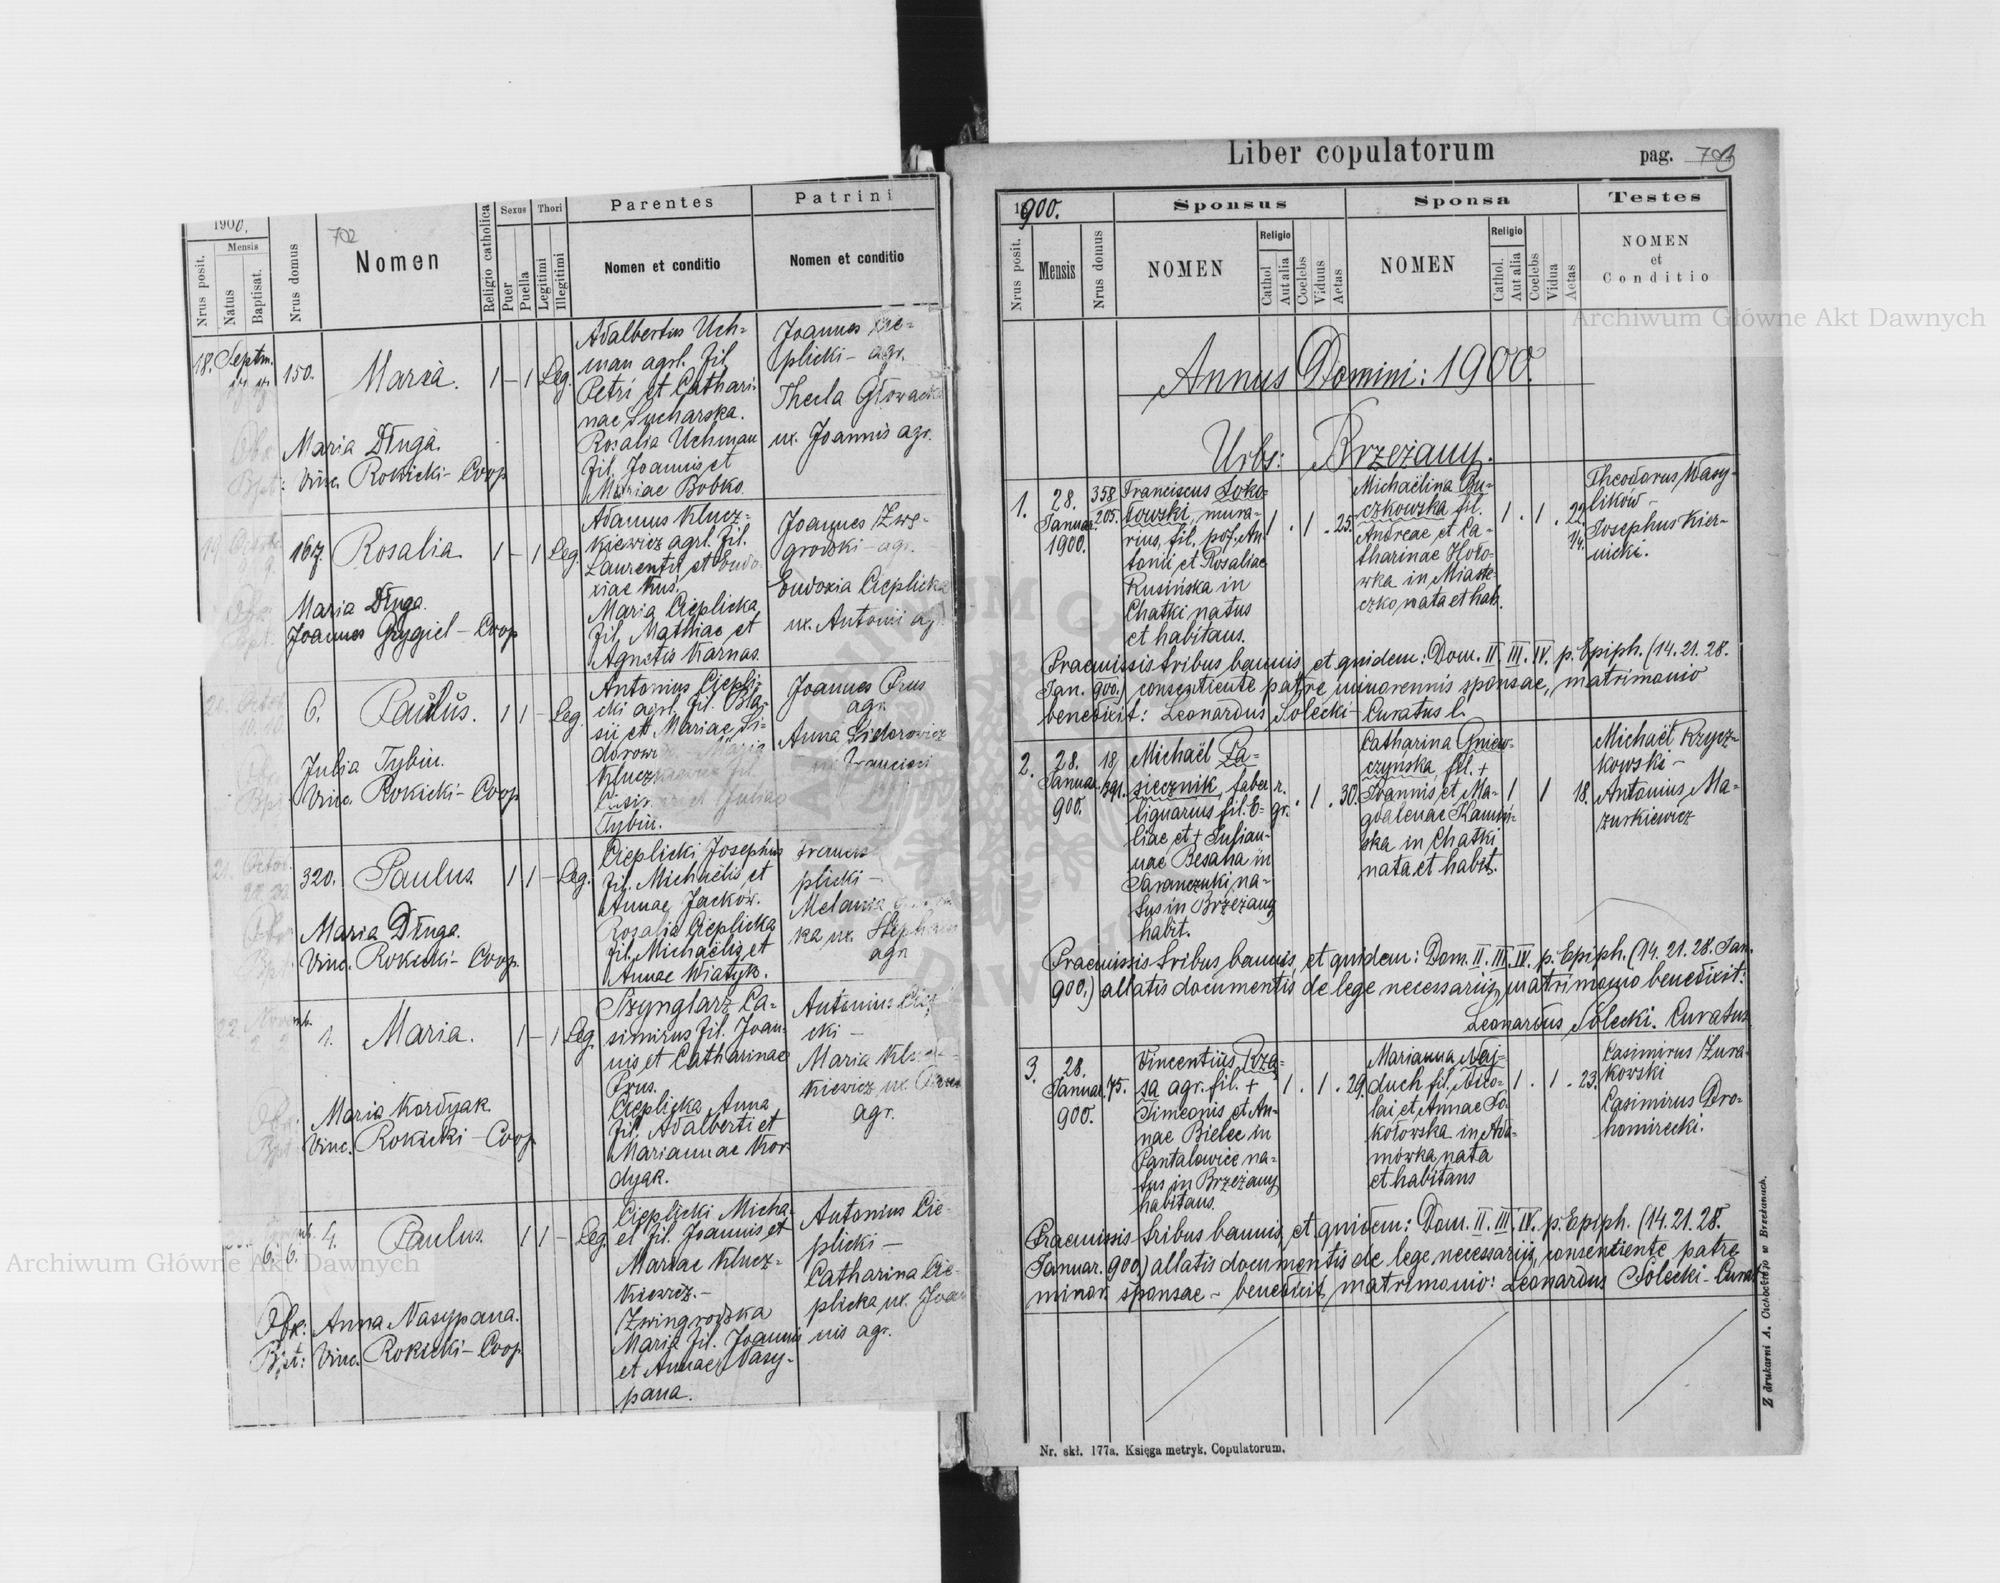 1900.
702
Nrus posit.
Mensis
Natus
Baptisat.
Nrus domus
Nomen
Religio catholica
Sexus
Puer
Puella
Thori
Legitimi
Illegitimi
Parentes
Nomen et conditio
Patrini
Nomen et conditio
18. Septm.
150. Maria. 1 – 1 Leg.
Adalbertus Uch=
man agrl. fil.
Petri et Cathari=
nae Sucharska.
Rosalia Uchman
fil. Joannis et
Mariae Bobko.
Joannes Cie=
plicki – agr.
Thecla Głowacka
ux. Joannis agr.
Maria Długa.
Vinc. Rokicki – Coop
19
167. Rosalia. 1 – 1 Leg.
Adamus Klucz=
kiewicz agrl. fil.
Laurentii et Eudo
xiae Kus
Maria Cieplicka
fil. Mathiae et
Agnetis Karnas.
Joannes Zwe=
grodski – agr.
Eudoxia Cieplicka
ux. Antonii ag
Maria Długa.
Joannes Grygiel – Coop
20. Octob.
6. Paulus. 1 1 – Leg.
Antonius Ciepli=
cki agrl. fil. Bla=
sii et Mariae Si=
dorow
Tybin.
Joannes Prus
agr.
Anna Sidorowicz
ux. Francisci
Julia Tybin.
Vinc. Rokicki – Coop
21. Octob.
320. Paulus. 1 1 – Leg.
Cieplicki Josephus
fil. Michaelis et
Annae Jacków.
Rozalia Cieplicka
fil. Michaelis et
Annae Wiatyk.
plicki –
Melania
ka ux. Stephani
agr.
Maria Długa.
Vinc. Rokicki – Coop.
22. Novemb.
1. Maria. 1 – 1 Leg.
Szynglarz Ca=
simirus fil. Joan=
nis et Catharinae
Prus.
Cieplicka Anna
fil. Adalberti et
Mariannae Kor=
dyak.
Antonius Ciep
cki –
Maria Klucz
kiewicz ux.
agr.
Maria Kordyak.
Vinc. Rokicki – Coop
6. 6. 4. Paulus. 1 1 – Leg.
Cieplicki Micha=
el fil. Joannis et
Mariae Klucz=
kiewicz. –
Zwingrodska
Maria fil. Joannis
et Annae Nasy=
pana.
Antonius Cie=
plicki –
Catharina Cie=
plicka ux. Joan
nis agr.
Obx: Anna Nasypana.
Bpt: Vinc. Rokicki – Coop
Liber copulatorum
pag. 703
1900.
Nrus posit.
Mensis
Nrus domus
Sponsus
NOMEN
Religio
Cathol.
Aut alia
Coelebs
Viduus
Aetas
Sponsa
NOMEN
Religio
Cathol.
Aut alia
Coelebs
Vidua
Aetas
Testes
NOMEN
et
Conditio
Annus Domini: 1900.
Urbs: Brzeżany.
1. 28.
Januar.
1900.
358
205.
Franciscus Soko=
łowski, mura=
rius, fil. pof. An
tonii et Rosaliae
Rusińska in
Chatki natus
et habitans.
1 . 1 . 25.
Michaëlina Gu=
czkowska fil.
Andreae et Ca=
tharinae Hoło=
wka in Miaste=
czko nata et hab.
1 . 1 . 22
Theodorus Wasy=
lików –
Josephus Kier=
nicki.
Praemissis tribus bannis, et quidem: Dom. II. III. IV. p. Epiph. (14. 21. 28.
Jan. 900.) consentiente patre minorennis sponsae, matrimonio
benedixit: Leonardus Solecki Curatus l.
2. 28.
Januar.
900.
18
391.
Michaël Pa=
siecznik, faber
lignarius fil. E=
liae et + Julian=
nae Besaha in
Taranczuki na=
tus in Brzeżany
habit.
r.
gr. . 1 . 30.
Catharina Gniew=
czyńska, fil. +
Joannis et Ma=
gdalenae Kamiń=
ska in Chatki
nata et habit.
1 1 18.
Michaël Krycz=
kowski –
Antonius Ma=
zurkiewicz
Praemissis tribus bannis, et quidem: Dom. II. III. IV. p. Epiph. (14. 21. 28. Jan.
900.) allatis documentis de lege necessariis, matrimonio benedixit:
Leonardus Solecki. Curatus
3. 28.
Januar.
900.
75.
Vincentius Rzą=
sa agr. fil. +
Simeonis et An=
nae Bielec in
Pantalowice na=
tus in Brzeżany
habitans.
1 . 1 . 29.
Marianna Naj=
duch fil. Nico=
lai et Annae So=
kołowska in Ada=
mówka nata
et habitans
1 . 1 . 23.
Casimirus Żura=
kowski
Casimirus Dro=
homirecki.
Praemissis tribus bannis, et quidem: Dom. II. III. IV. p. Epiph. (14. 21. 28.
Januar. 900.) allatis documentis de lege necessariis, consentiente patre
minor. sponsae – benedixit matrimonio: Leonardus Solecki – Curat
Nr. skł. 177a. Księga metryk. Copulatorum.
Z drukarni A. Cichockiego w Brzeżanach.
Archiwum Główne Akt Dawnych
Archiwum Główne Akt Dawnych